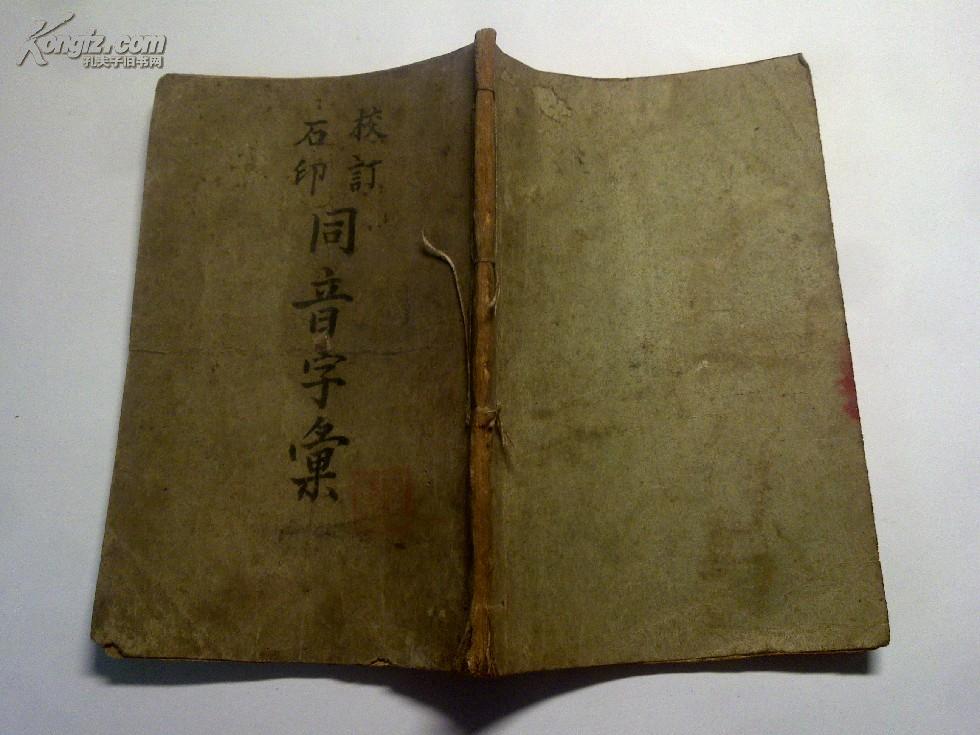 Kongfz.com
孔夫子旧书网
校訂
石印
同音字彙